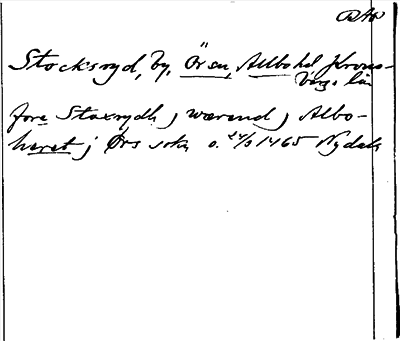 Stocksryd, by, Ör sn, Allbo hd Krono-
bergs län
fore Staxrydh j wærend j Albo-
heret j Ørs sokn o. 1465 Nydala